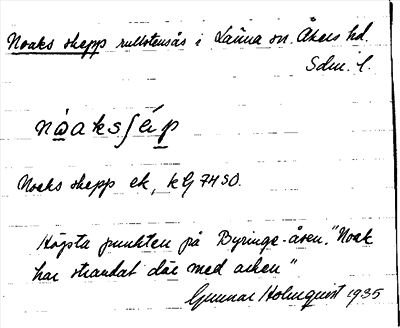 Noaks skepp rullstensås i Länna sn. Åkers hd.
Sdm. l.
nòaksʃép
Noaks skepp ek, kG 7430.
Högsta punkten på Byringe-åsen. "Noak
har strandat där med arken"
Gunnar Holmquist 1935